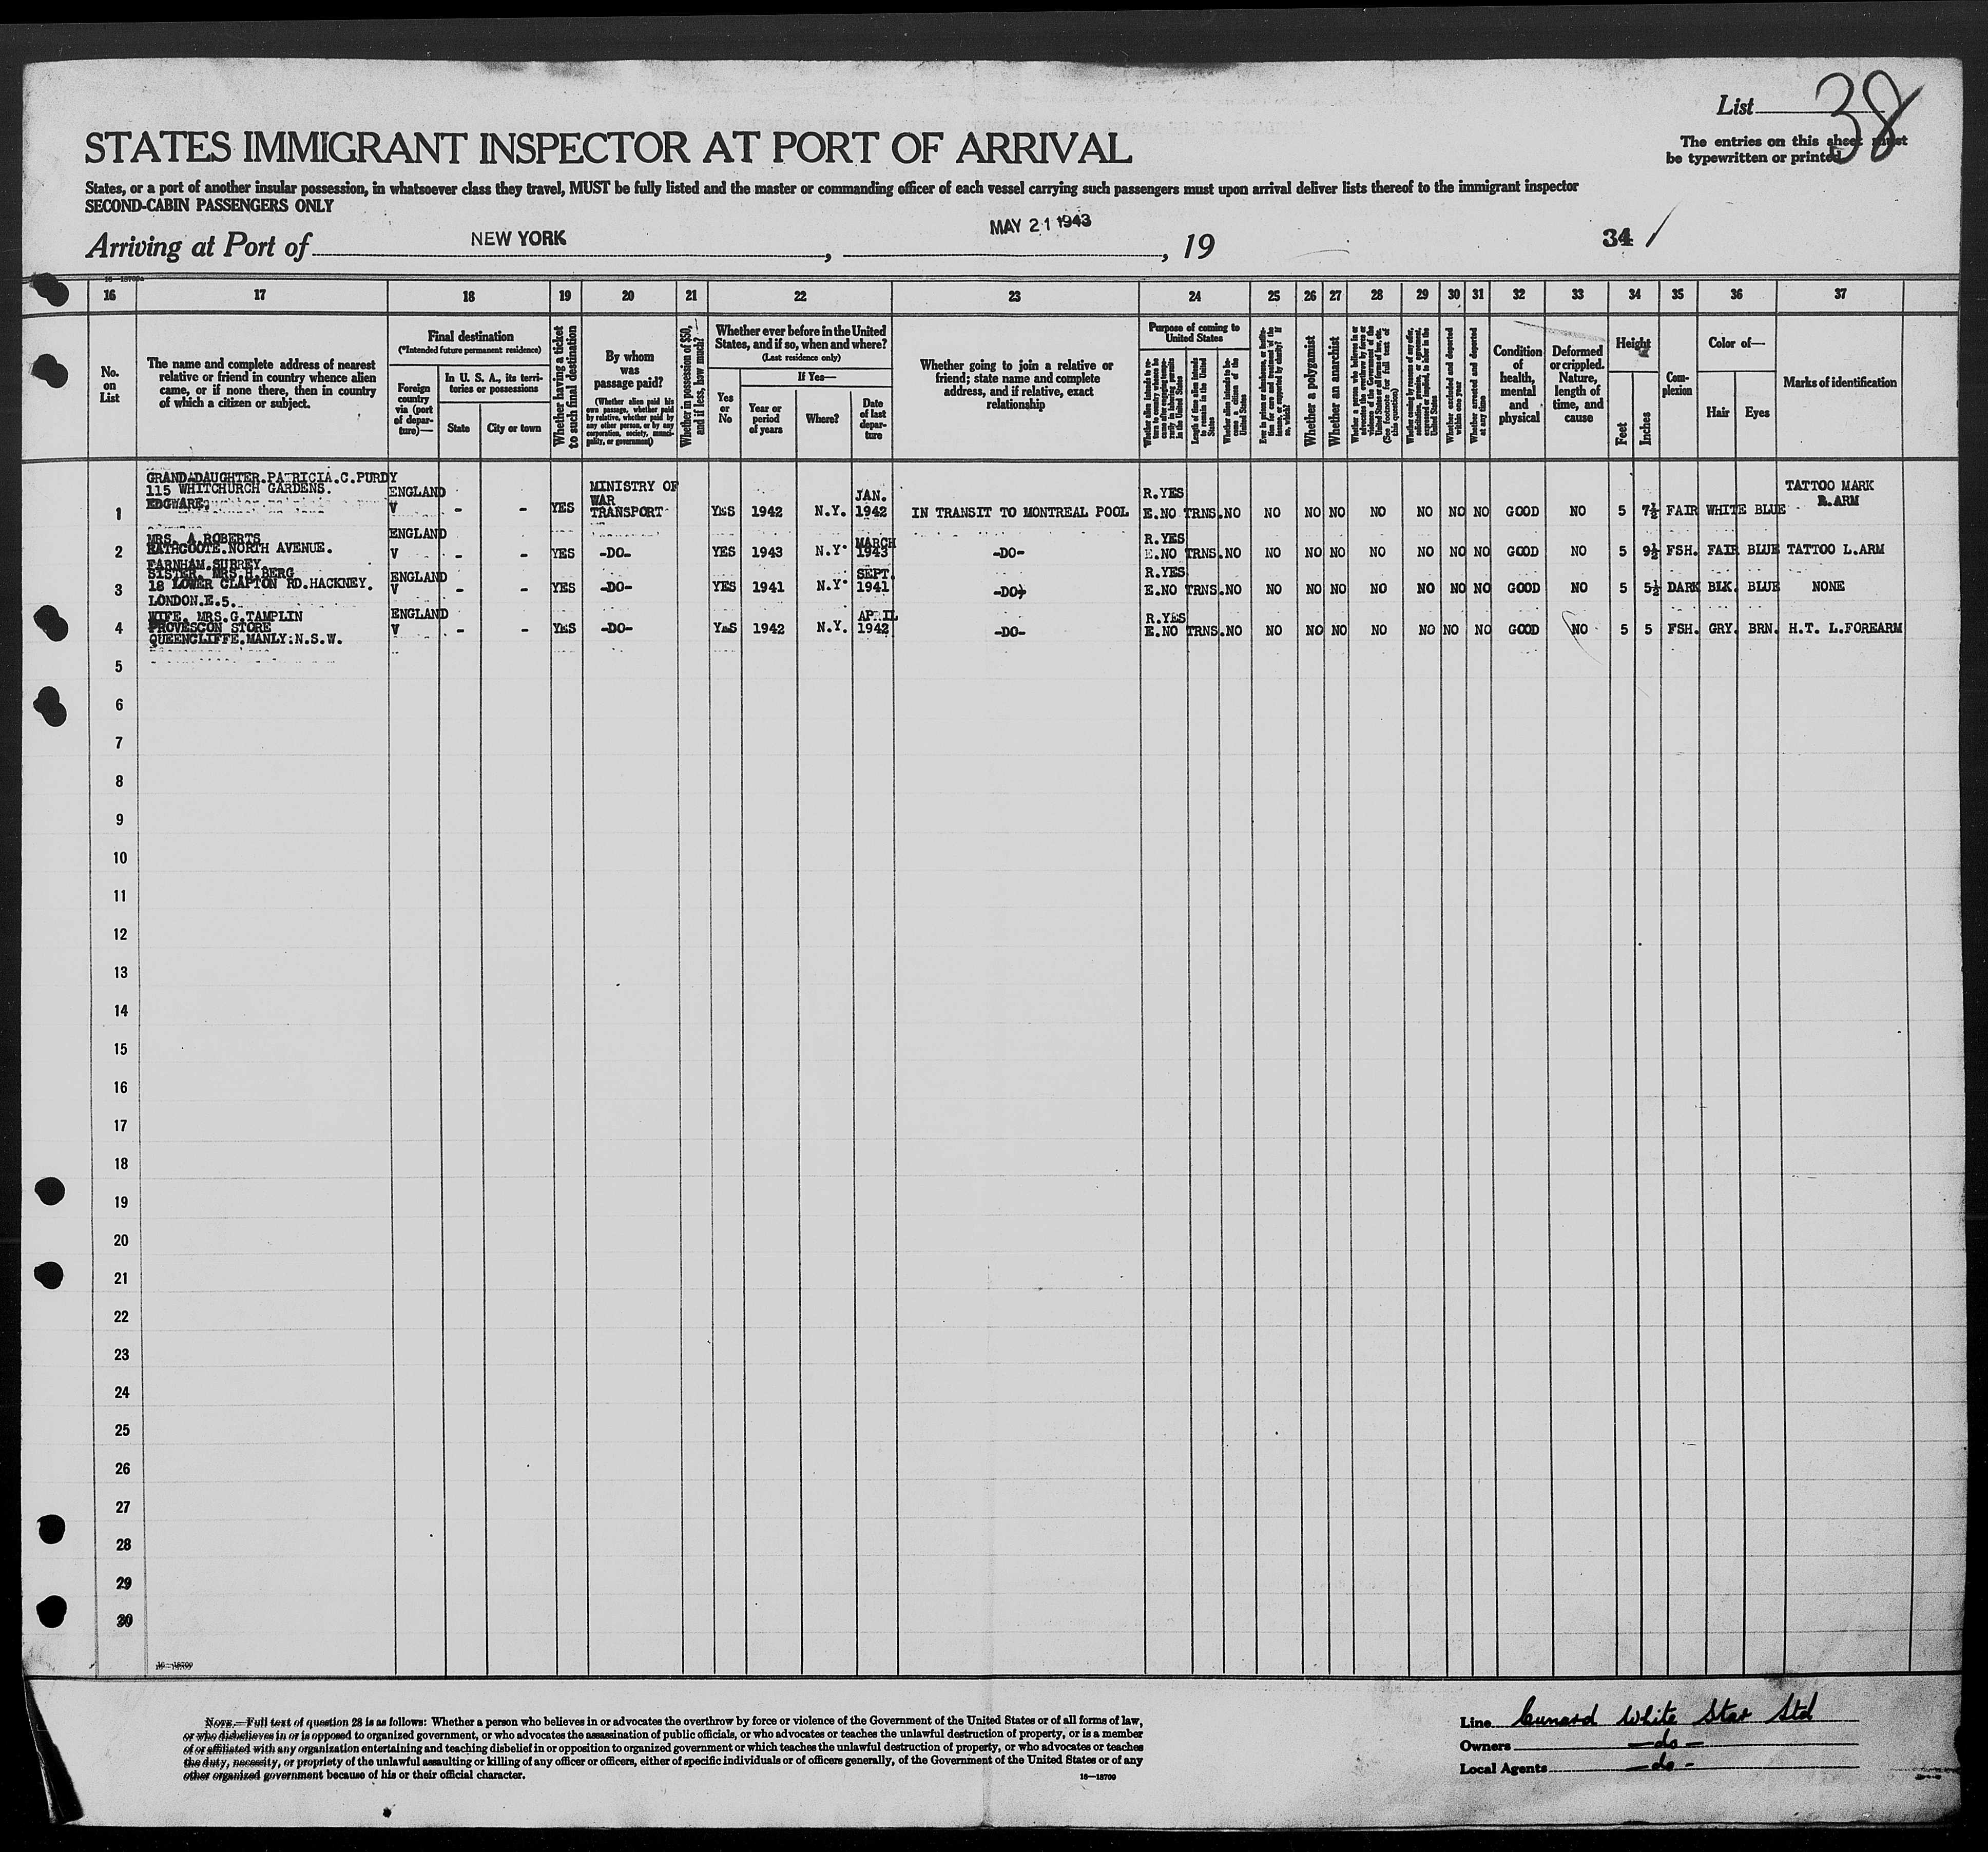 List 38
The entries on this sheet must
be typewritten or printed
STATES IMMIGRANT INSPECTOR AT PORT OF ARRIVAL
States, or a port of another insular possession, in whatsoever class they travel, MUST be fully listed and the master or commanding officer of each vessel carrying such passengers must upon arrival deliver lists thereof to the immigrant inspector
SECOND-CABIN PASSENGERS ONLY
Arriving at Port of NEW YORK, MAY 21 1943, 19
34
16 17 18 19 20 21 22 23 24 25 26 27 28 29 30 31 32 33 34 35 36 37
No. on List
The name and complete address of nearest
relative or friend in country whence alien
came, or if none there, then in country
of which a citizen or subject.
Final destination
(*Intended future permanent residence)
Foreign country via (port of departure)—
In U. S. A., its territories or possessions
State
City or town
Whether having a ticket to such final destination
By whom was passage paid?
(Whether alien paid his own passage, whether paid by relative, whether paid by any other person, or by any corporation, society, municipality, or government)
Whether in possession of $50, and if less, how much?
Whether ever before in the United States, and if so, when and where?
(Last residence only)
Yes or No
If Yes—
Year or period of years
Where?
Date of last departure
Whether going to join a relative or
friend; state name and complete
address, and if relative, exact
relationship
Purpose of coming to United States
Length of time alien intends to remain in the United States
Whether alien intends to become a citizen of the United States
Whether a polygamist
Whether an anarchist
Whether excluded and deported within one year
Whether arrested and deported at any time
Condition of health, mental and physical
Deformed or crippled. Nature, length of time, and cause
Height
Feet
Inches
Complexion
Color of—
Hair
Eyes
Marks of identification
GRAND-DAUGHTER.PATRICIA.C.PURDY
115 WHITCHURCH GARDENS.
EDGWARE.
1 ENGLAND V - - YES MINISTRY OF WAR TRANSPORT YES 1942 N.Y. JAN. 1942 IN TRANSIT TO MONTREAL POOL R.YES E.NO TRNS. NO NO NO NO NO NO NO NO GOOD NO 5 7½ FAIR WHITE BLUE TATTOO MARK R.ARM
MRS. A.ROBERTS
NORTH AVENUE.
FARNHAM.SURREY
2 ENGLAND V - - YES -DO- YES 1943 N.Y. MARCH 1943 -DO- R.YES E.NO TRNS. NO NO NO NO NO NO NO NO GOOD NO 5 9½ FSH. FAIR BLUE TATTOO L.ARM
SISTER. MRS.H.BERG
18 LOWER CLAPTON RD.HACKNEY.
LONDON.E.5.
3 ENGLAND V - - YES -DO- YES 1941 N.Y. SEPT. 1941 -DO- R.YES E.NO TRNS. NO NO NO NO NO NO NO NO GOOD NO 5 5½ DARK BLK. BLUE NONE
WIFE. MRS.G.TAMPLIN
PROVESCON STORE
QUEENCLIFFE.MANLY:N.S.W.
4 ENGLAND V - - YES -DO- YES 1942 N.Y. APRIL 1942 -DO- R.YES E.NO TRNS. NO NO NO NO NO NO NO NO GOOD NO 5 5 FSH. GRY. BRN. H.T. L.FOREARM
5
6
7
8
9
10
11
12
13
14
15
16
17
18
19
20
21
22
23
24
25
26
27
28
29
30
16—18709
NOTE.—Full text of question 28 is as follows: Whether a person who believes in or advocates the overthrow by force or violence of the Government of the United States or of all forms of law,
or who disbelieves in or is opposed to organized government, or who advocates the assassination of public officials, or who advocates or teaches the unlawful destruction of property, or is a member
of or affiliated with any organization entertaining and teaching disbelief in or opposition to organized government or which teaches the unlawful destruction of property, or who advocates or teaches
the duty, necessity, or propriety of the unlawful assaulting or killing of any officer or officers, either of specific individuals or of officers generally, of the Government of the United States or of any
other organized government because of his or their official character.
16—18709
Line Cunard White Star Ltd
Owners —do—
Local Agents —do-